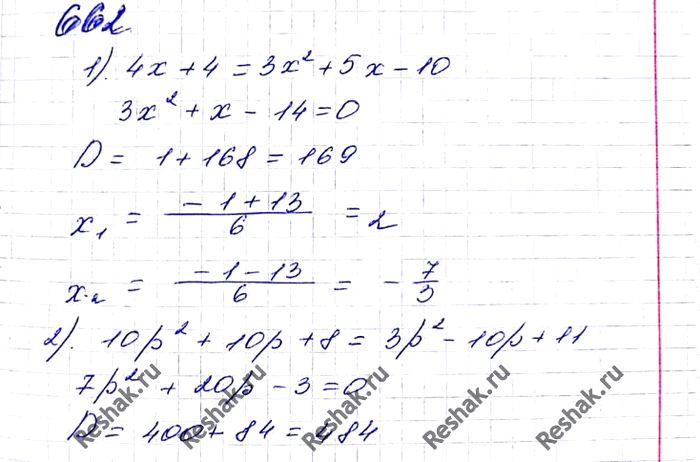 662
1). 4x + 4 = 3x² + 5x - 10
3x² + x - 14 = 0
D = 1 + 168 = 169
x₁ = (-1 + 13)/6 = 2
x₂ = (-1 - 13)/6 = -7/3
2). 10p² + 10p + 8 = 3p² - 10p + 11
7p² + 20p - 3 = 0
D = 400 + 84 = 484
Reshak.ru Reshak.ru Reshak.ru Reshak.ru